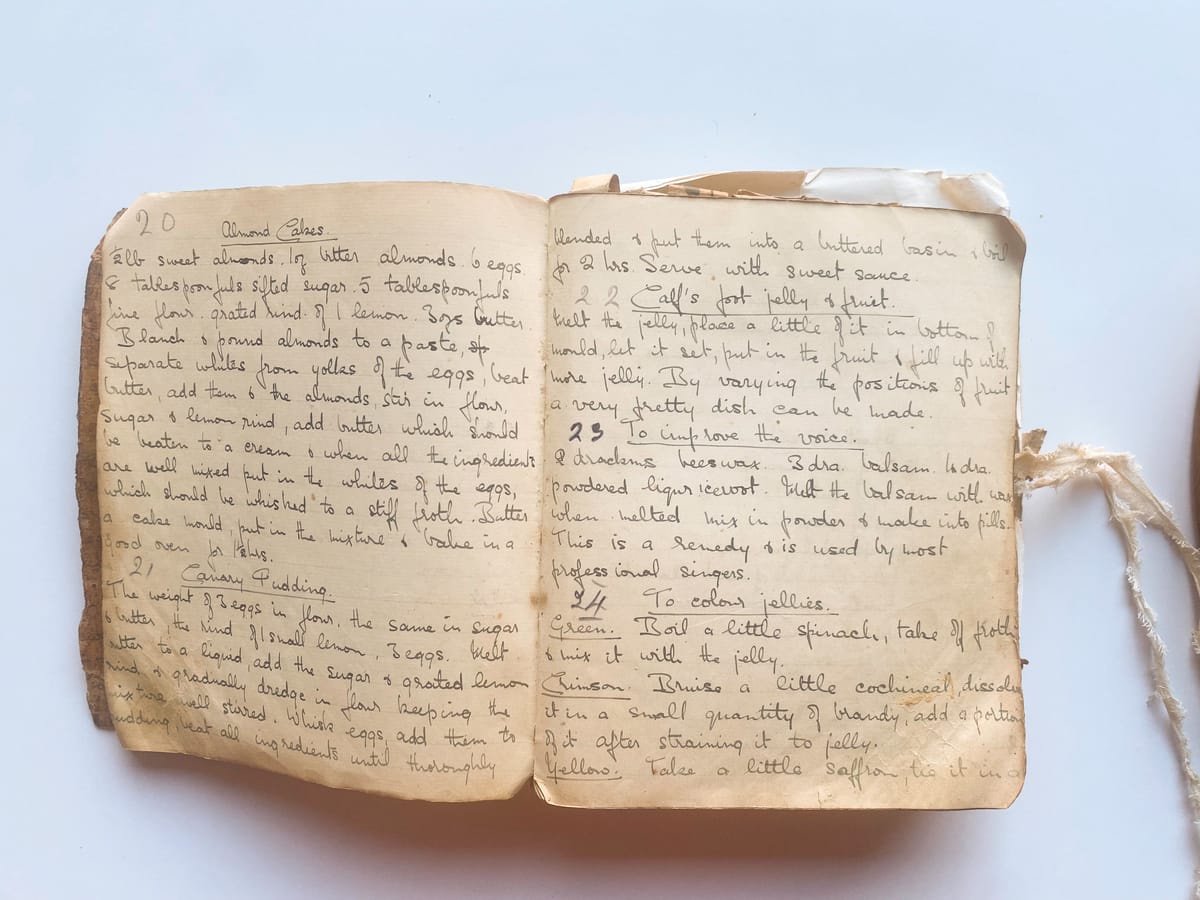 20
Almond Cakes.
½lb sweet almonds. 1oz bitter almonds. 6 eggs.
8 tablespoonfuls sifted sugar. 5 tablespoonfuls
fine flour. grated rind of 1 lemon. 3ozs butter.
Blanch & pound almonds to a paste,
separate whites from yolks of the eggs, beat
butter, add them & the almonds, stir in flour,
sugar & lemon rind, add butter which should
be beaten to a cream & when all the ingredients
are well mixed put in the whites of the eggs,
which should be whisked to a stiff froth. Butter
a cake mould, put in the mixture & bake in a
good oven for hrs.
21 Canary Pudding.
The weight of 3 eggs in flour, the same in sugar
& butter, the rind of 1 small lemon, 3 eggs. Melt
butter to a liquid, add the sugar & grated lemon
rind, & gradually dredge in flour keeping the
mixture well stirred. Whisk eggs, add them to
pudding, beat all ingredients until thoroughly
blended & put them into a buttered basin & boil
for 2 hrs. Serve with sweet sauce.
22 Calf's foot jelly & fruit.
Melt the jelly, place a little of it in bottom of
mould, let it set, put in the fruit & fill up with
more jelly. By varying the positions of fruit
a very pretty dish can be made.
23 To improve the voice.
2 drachms beeswax. 3 dra. balsam. dra.
powdered liquriceroot. Melt the balsam with wax
when melted mix in powder & make into pills.
This is a remedy & is used by most
professional singers.
24 To colour jellies.
Green. Boil a little spinach, take off froth
& mix it with the jelly.
Crimson. Bruise a little cochineal, dissolve
it in a small quantity of brandy, add a portion
of it after straining it to jelly.
Yellow. Take a little saffron, tie it in a